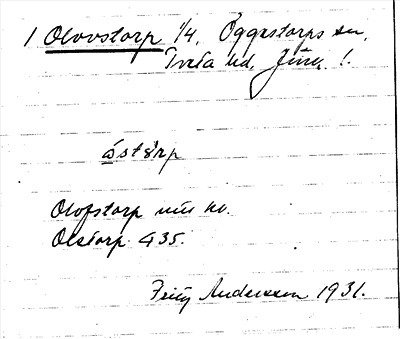 1 Olovstorp 1/4, Öggestorps sn,
Tveta hd, Jönk. l.
åstårp
Olofstorp
Olstorp G 35.
Andersson 1931.